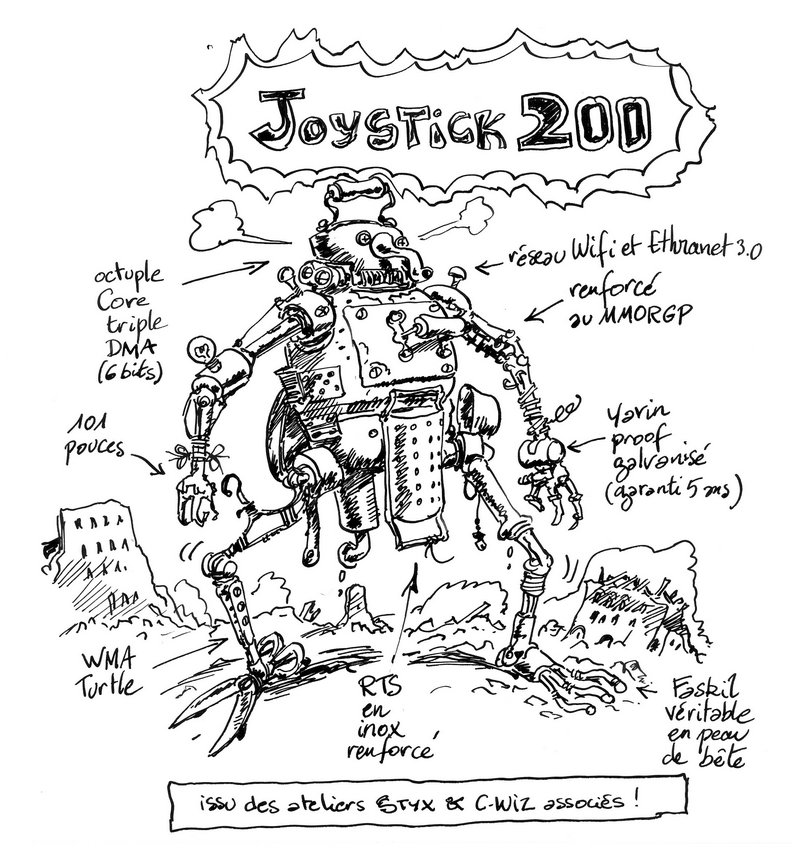 JOYSTICK 200
octuple
Core
triple
DMA
(6 bits)
réseau Wifi et Ethranet 3.0
renforcé
au MMORGP
101
pouces
yavin
proof
galvanisé
(garanti 5 ans)
WMA
Turtle
RTS
en
inox
renforcé
Faskil
véritable
en peau
de bête
issu des ateliers STYX & C-WIZ associés !